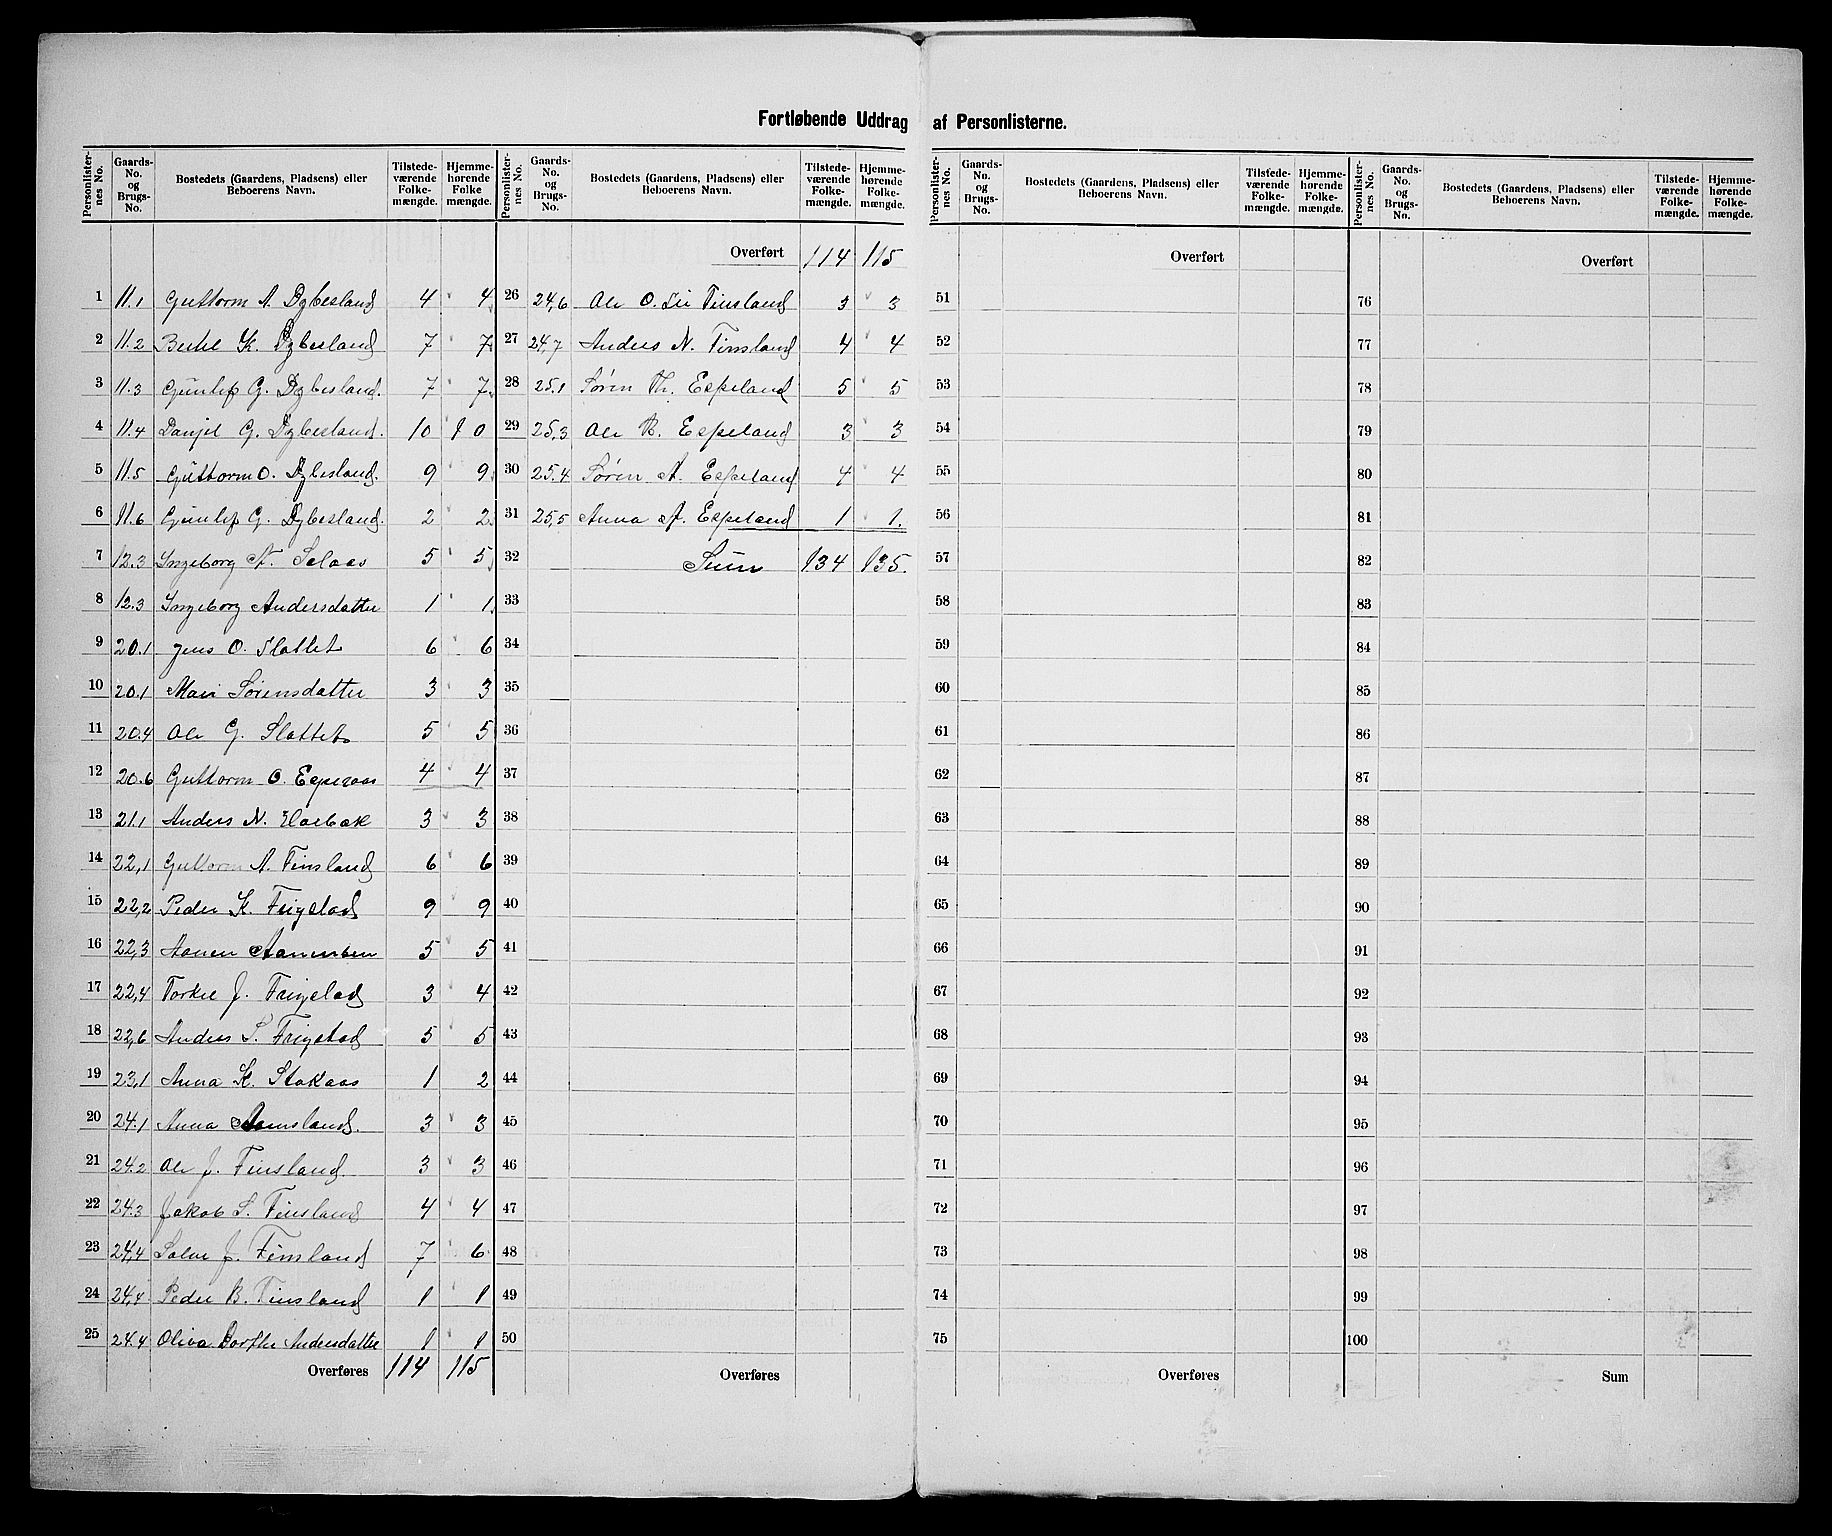 Fortløbende Uddrag af Personlisterne.
Personlister-nes No. | Gaards-No. og Brugs-No. | Bostedets (Gaardens, Pladsens) eller Beboerens Navn. | Tilstede-værende Folke-mængde. | Hjemme-hørende Folke mængde.
1 11.1 Guttorm A. Dybesland 4 4
2 11.2 Bertel K. Dybesland 7 7
3 11.3 Gunlef G. Dybesland. 7 7
4 11.4 Danjel G. Dybesland. 10 10
5 11.5 Guttorm O. Dybesland. 9 9
6 11.6 Gunlef G. Dybesland. 2 2
7 12.3 Ingeborg A. Salaas 5 5
8 12.3 Ingeborg Andersdatter 1 1
9 20.1 Jens O. Slottet 6 6
10 20.1 Mari Sørensdatter 3 3
11 20.4 Ole G. Slottet 5 5
12 20.6 Guttorm O. Esperaas 4 4
13 21.1 Anders N. 3 3
14 22,1 Guttorm A. Finsland 6 6
15 22,2 Peder K. Frigstad 9 9
16 22,3 5 5
17 22,4 Torkel J. Frigstad 3 4
18 22,6 Anders S. Frigstad 5 5
19 23,1 Anna K. Stakaas 1 2
20 24.1 Anna 3 3
21 24.2 Ole J. Finsland 3 3
22 24.3 Jakob S. Finsland 4 4
23 24,4 Salve J. Finsland 7 6
24 24,4 Peder B. Finsland 1 1
25 24.4 Oliva Dorthe Andersdatter 1 1
Overføres 114 115
Personlister-nes No. | Gaards-No. og Brugs-No. | Bostedets (Gaardens, Pladsens) eller Beboerens Navn. | Tilstede-værende Folke-mængde. | Hjemme-hørende Folke-mængde.
Overført 114 115
26 24,6 Ole O. Li Finsland 3 3
27 24,7 Anders N. Finsland 4 4
28 25.1 Søren Th. Espeland 5 5
29 25,3 Ole Espeland 3 3
30 25.4 Søren A. Espeland 4 4
31 25,5 Anna A. Espeland 1 1.
32 Sum 134 135.
33
34
35
36
37
38
39
40
41
42
43
44
45
46
47
48
49
50
Overføres
Personlister-nes No. | Gaards-No. og Brugs-No. | Bostedets (Gaardens, Pladsens) eller Beboerens Navn. | Tilstede-værende Folke-mængde. | Hjemme-hørende Folke-mængde.
Overført
51
52
53
54
55
56
57
58
59
60
61
62
63
64
65
66
67
68
69
70
71
72
73
74
75
Overføres
Personlister-nes No. | Gaards-No. og Brugs-No. | Bostedets (Gaardens, Pladsens) eller Beboerens Navn. | Tilstede-værende Folke-mængde. | Hjemme-hørende Folke-mængde.
Overført
76
77
78
79
80
81
82
83
84
85
86
87
88
89
90
91
92
93
94
95
96
97
98
99
100
Sum